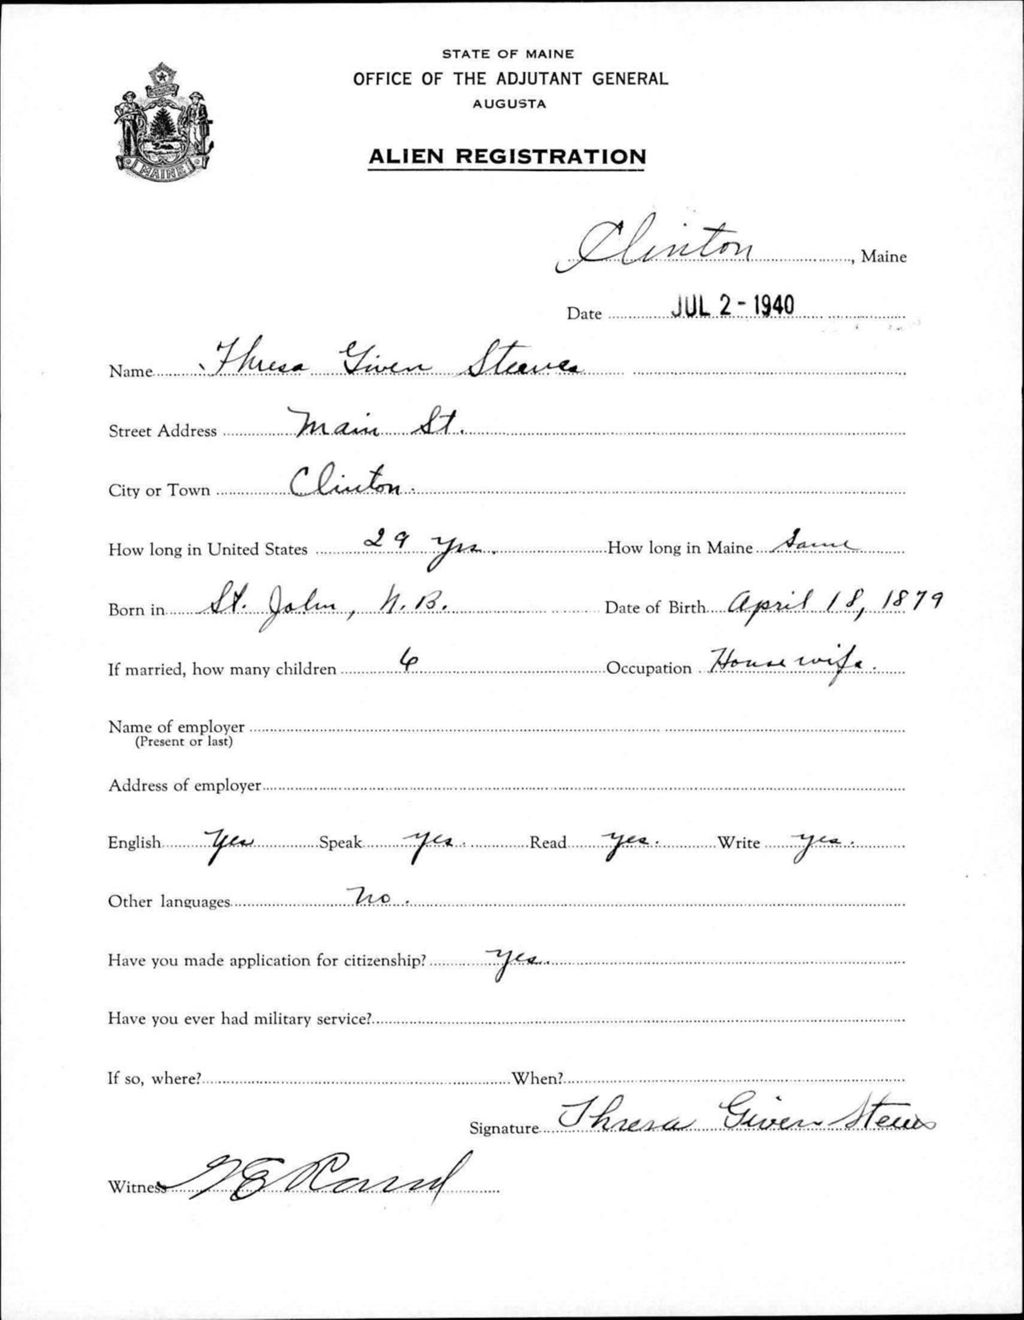 STATE OF MAINE
OFFICE OF THE ADJUTANT GENERAL
AUGUSTA
ALIEN REGISTRATION
MAINE
Clinton, Maine
Date JUL 2 - 1940
Name Thresa Given Steeves
Street Address Main St.
City or Town Clinton.
How long in United States 29 yrs. How long in Maine Same
Born in St. John, N.B. Date of Birth April 18, 1879
If married, how many children 6 Occupation Housewife.
Name of employer
(Present or last)
Address of employer
English Yes Speak yes. Read yes. Write yes.
Other languages No.
Have you made application for citizenship? yes.
Have you ever had military service?
If so, where? When?
Signature Thresa Given Steeves
Witness Rand